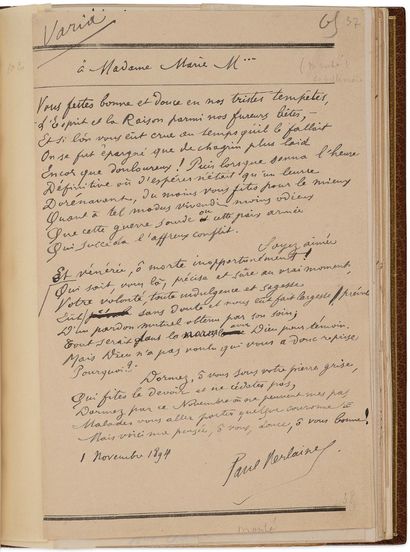 Varia
65 57
à Madame Marie M***
Vous fûtes bonne et douce en nos tristes tempêtes,
L'Esprit et la Raison parmi nos fureurs bêtes,
Et si l'on vous eût crue au temps qu'il le fallait
On se fût épargné que de chagrin plus laid
Encor que douloureux ! Puis lorsque sonna l'heure
Définitive où d'espérer n'était qu'un leurre
Dorénavant, du moins vous fîtes pour le mieux
Quant à tel modus vivendi moins odieux
Que cette guerre sourde ou cette paix armée
Qui succéda l'affreux conflit.
Soyez aimée
Et vénérée, ô morte inopportunément !
Qui sait, vous là, précise et sûre au vrai moment,
Votre volonté, toute indulgence et sagesse
Eût sans doute et nous eût fait largesse
D'un pardon mutuel obtenu par son soin,
Tout serait dans la Dieu pour témoin.
Mais Dieu n'a pas voulu, qui vous a donc reprise
Pourquoi ?
Dormez, ô vous sous votre pierre grise,
Qui fîtes le devoir et ne cédâtes pas,
Dormez par ce Novembre où ne peuvent mes pas
Malades vous aller porter quelque couronne
Mais voici ma pensée, ô vous, douce, ô vous bonne !
1 Novembre 1894
Paul Verlaine